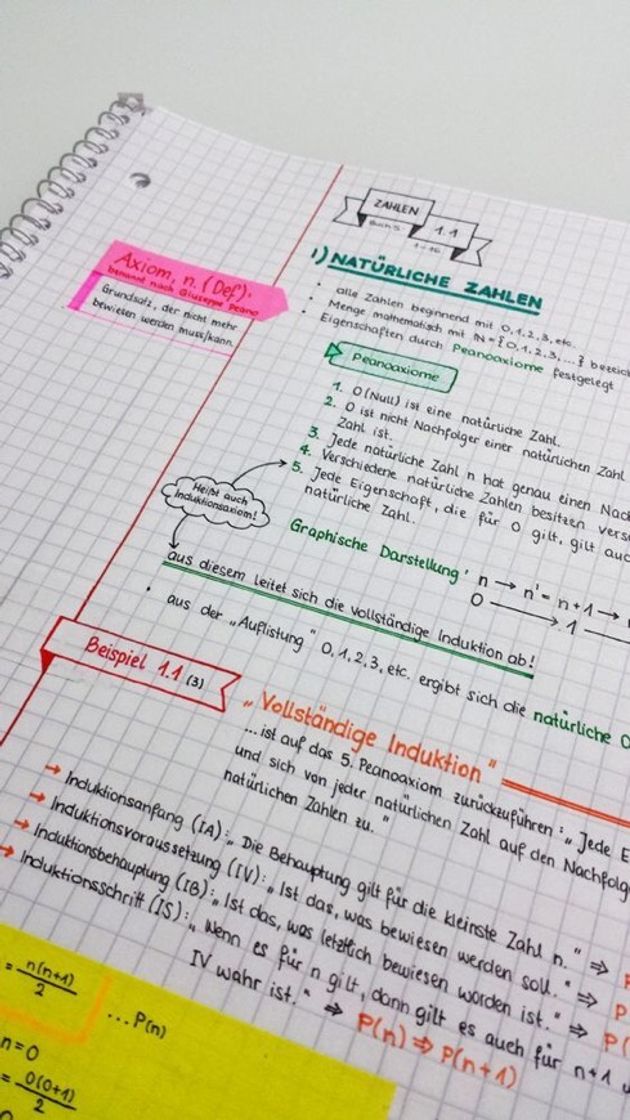 ZAHLEN
Buch S.
1.1
1 - 16
1) NATÜRLICHE ZAHLEN
• alle Zahlen beginnend mit 0,1,2,3, etc.
• Menge mathematisch mit N = {0,1,2,3,...} bezeich
• Eigenschaften durch Peanoaxiome festgelegt
Axiom, n. (Def):
benannt nach Giuseppe Peano
Grundsatz, der nicht mehr
bewiesen werden muss/kann.
Peanoaxiome
1. 0 (Null) ist eine natürliche Zahl.
2. 0 ist nicht Nachfolger einer natürlichen Zahl
Zahl ist.
3. Jede natürliche Zahl n hat genau einen Nach
4. Verschiedene natürliche Zahlen besitzen vers
5. Jede Eigenschaft, die für 0 gilt, gilt auc
natürliche Zahl.
Heißt auch
Induktionsaxiom!
Graphische Darstellung: n → n' = n+1 →
0 → 1
aus diesem leitet sich die vollständige Induktion ab!
• aus der „Auflistung" 0,1,2,3, etc. ergibt sich die natürliche O
Beispiel 1.1 (3)
„Vollständige Induktion"
...ist auf das 5. Peanoaxiom zurückzuführen: „Jede E
und sich von jeder natürlichen Zahl auf den Nachfolg
natürlichen Zahlen zu."
→ Induktionsanfang (IA): „Die Behauptung gilt für die kleinste Zahl n." ⇒ P
→ Induktionsvoraussetzung (IV): „Ist das, was bewiesen werden soll." ⇒ P
→ Induktionsbehauptung (IB): „Ist das, was letztlich bewiesen worden ist." ⇒ P(
→ Induktionsschritt (IS): „Wenn es für n gilt, dann gilt es auch für n+1 u
IV wahr ist." ⇒ P(n) ⇒ P(n+1)
= n(n+1)/2 ...P(n)
n=0
= 0(0+1)/2